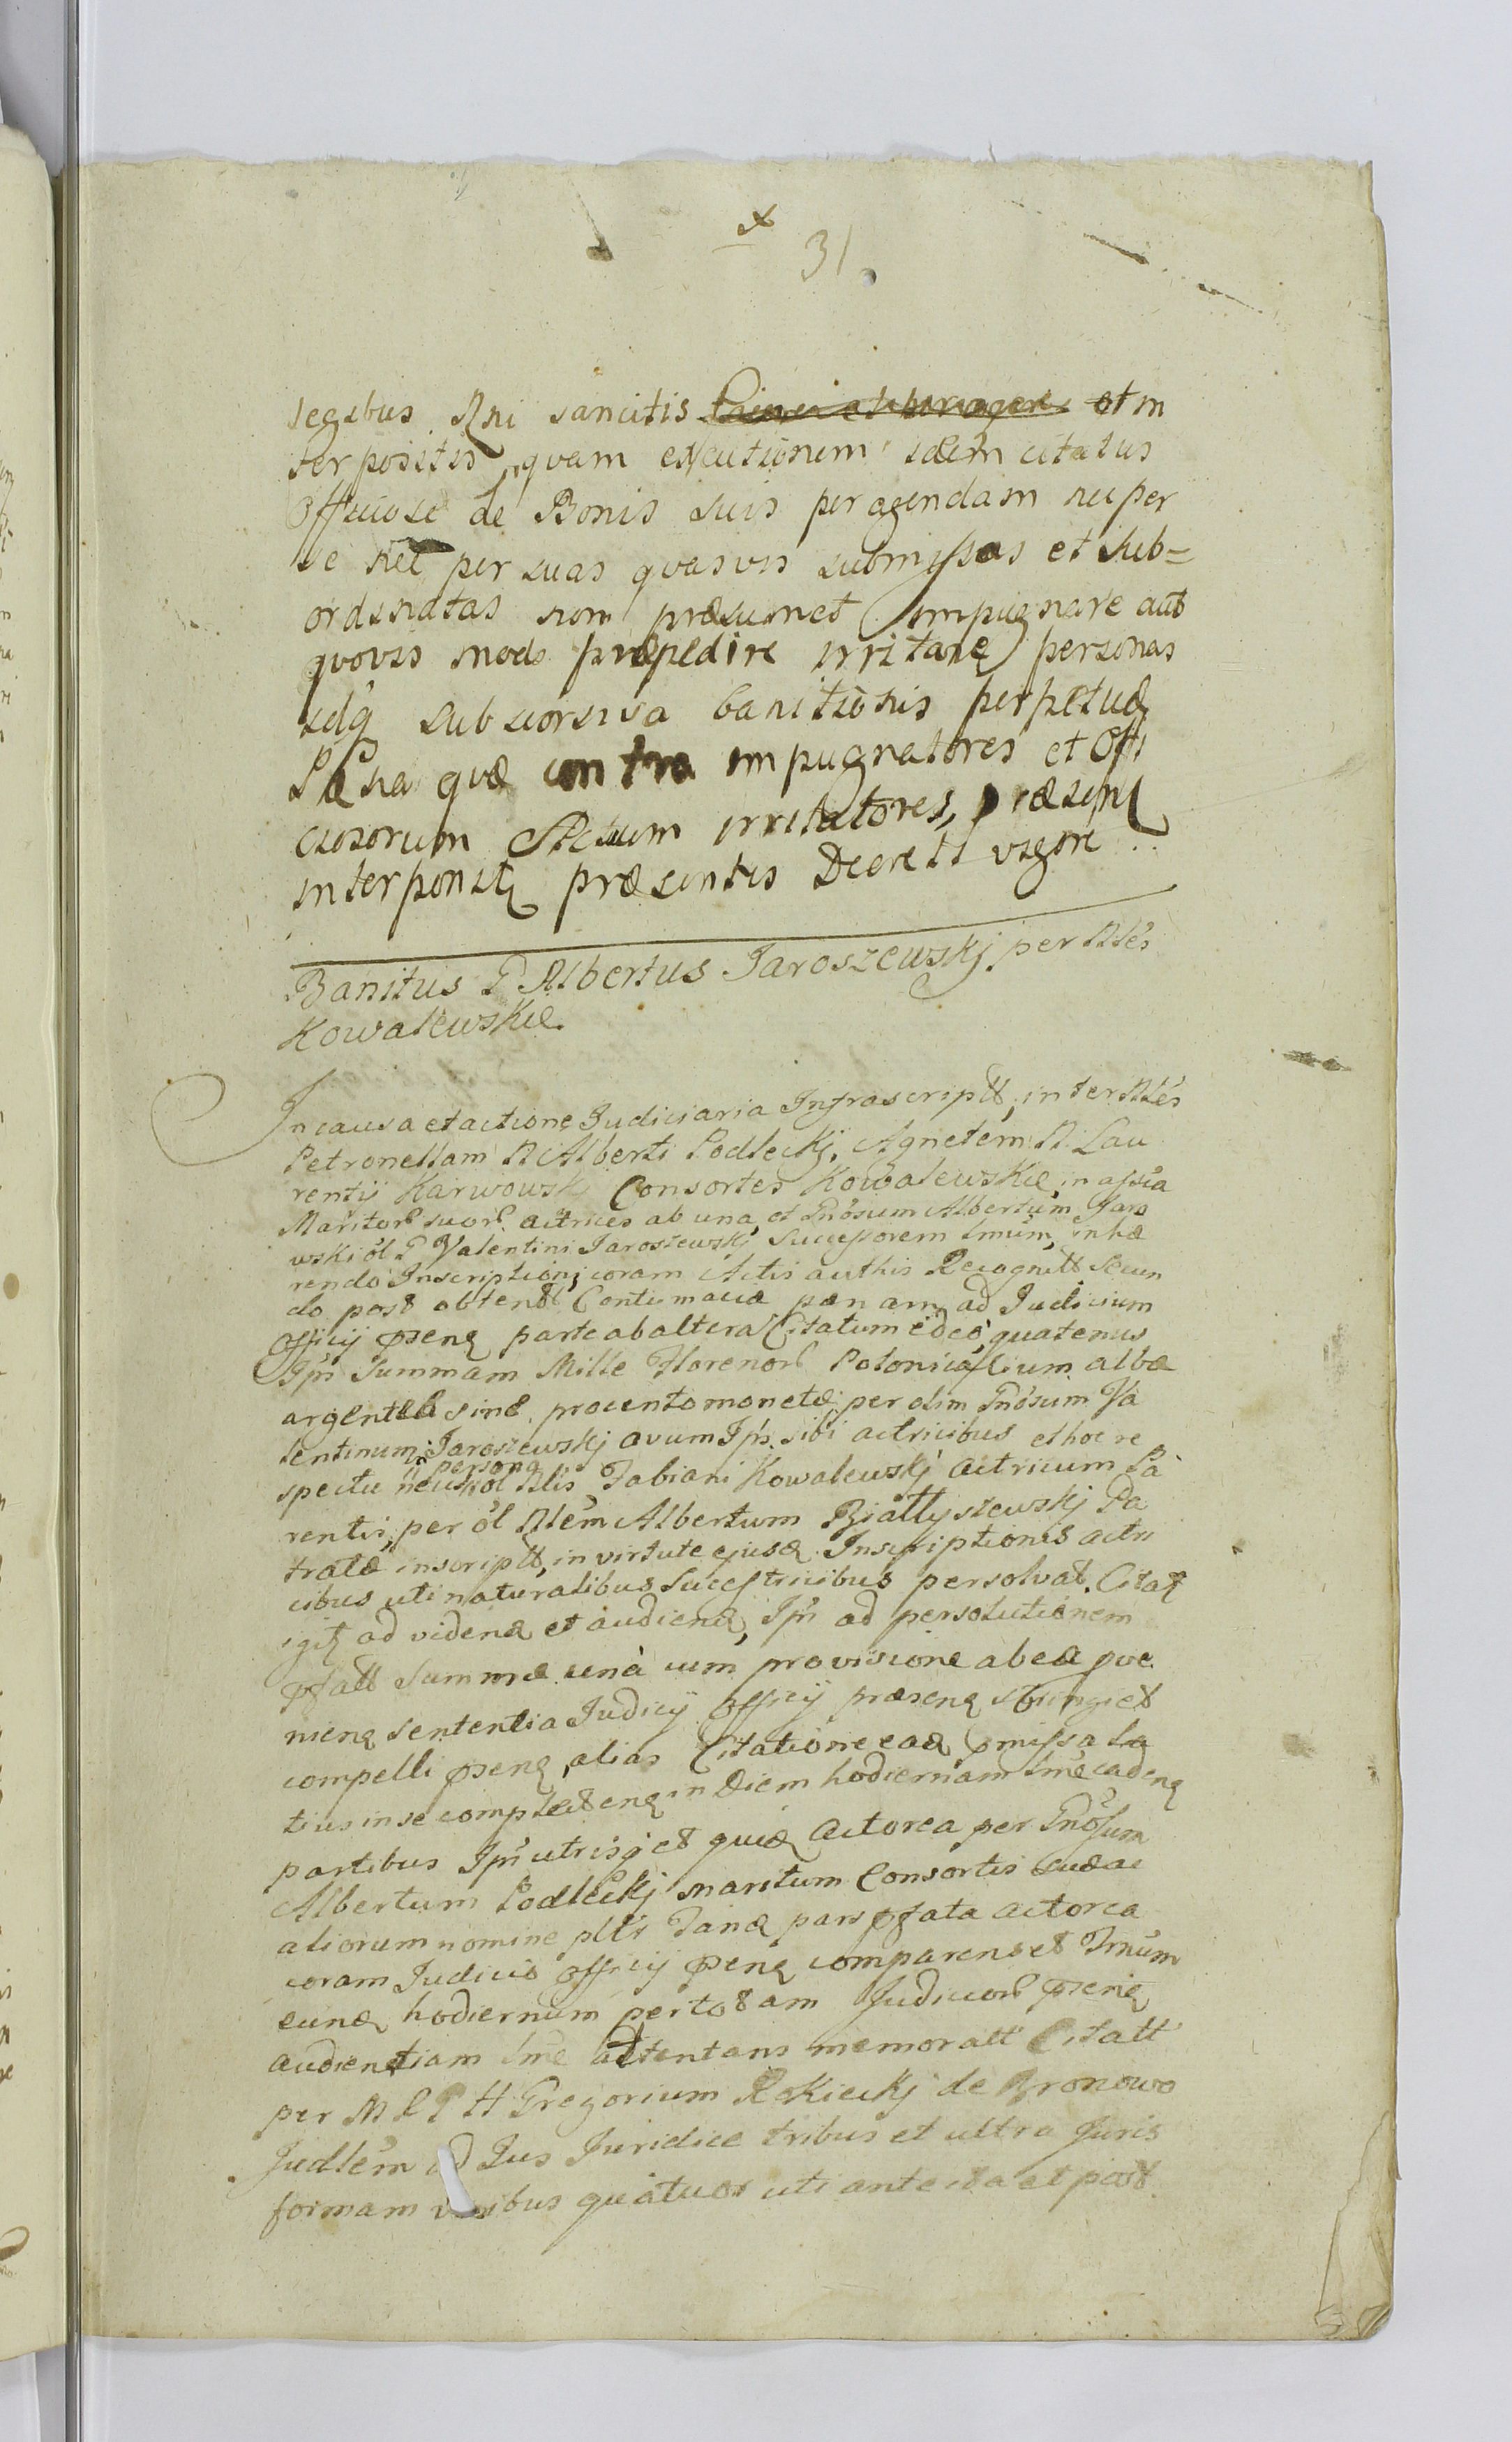 31
legibus Rni sancitis et in
terpositis, quam executionem idem citatus
Officiose de Bonis suis peragendam nec per
se nec per suas quasvis submissas et sub=
ordinatas non præsumet impugnare aut
quovis modo præpedire irritare personas
idq sub seorsiva banitionis perpetuæ
Pæna quæ contra impugnatores et Offi
ciosorum irritatores, præsent
interponitz præsentis Decreti vigore
Banitus G Albertus Jaroszewskj per Nles
Kowalewskie.
In causa et actione Judiciaria Infrascriptt, inter Nles
Petronellam N Alberti Podleckj, Agnetem N Lau
rentij Karwowskj Consortes Kowalewskie, in assia
Maritor suor actrices ab una, et Gnosum Albertum Jaro
wski ol G Valentini Jaroszewskj Successorem lmum, inhæ
rendo Inscriptioni coram Actis authis Recognitt Secun
do post obtent Contumaciæ pænam ad Judicium
Officij psens parte ab altera Citatum ideo, quatenus
Ipse Summam Mille Florenor Polonicalium albæ
argenteæ sine procento monetæ per olim Gnosum Va
lentinum Jaroszewskj avum Ips. sibi actricibus et hoc re
persona
spectu ol Nlis Fabiani Kowalewskj actricum Pa
rentis, per ol Nlem Albertum Białłyszewskj Pa
tratæ inscriptt, in virtute ejusd Inscriptionis actri
cibus uti naturalibus Successtricibus persolvat. Citatz
igitz ad vidend et audiend, Ipse ad persolutionem
pfatt Summæ una cum provisione ab ea pve
niens sententia Judicij Officij præsens stringi et
compelli psens, alias Citatione ead pmissa la
tius in se complectens in Diem hodiernam lme cadens
partibus Ips utrisq et quia actorea per Gnosum
Albertum Podleckj maritum Consortis suæ ac
aliorum nomine pltis Fand pars pfata actorea
coram Judicio Officij psens comparens et Trnum
eund hodiernum per totam Judicior psens
audientiam lme attentans memoratt Citatt
per M S P H Gregorium Rokieckj de Bronowo
Judlem ad Jus Juridice tribus et ultra Juris
formam vicibus quatuor uti ante ita et post